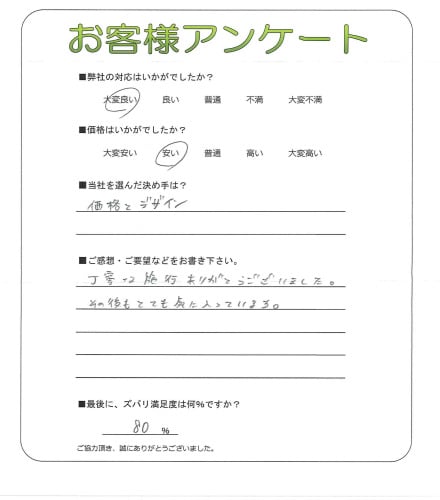 お客様アンケート
■弊社の対応はいかがでしたか？
大変良い　良い　普通　不満　大変不満
■価格はいかがでしたか？
大変安い　安い　普通　高い　大変高い
■当社を選んだ決め手は？
価格とデザイン
■ご感想・ご要望などをお書き下さい。
丁寧な施行ありがとうございました。
その後もとても気に入っています。
■最後に、ズバリ満足度は何％ですか？
80 ％
ご協力頂き、誠にありがとうございました。